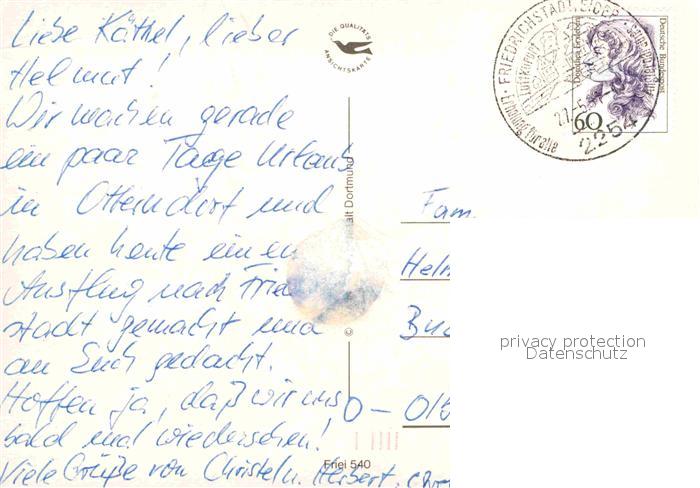 Liebe Käthel, lieber
Helmut!
Wir machen gerade
ein paar Tage Urlaub
in Otterndorf und
haben heute einen
Ausflug nach Frie
stadt gemacht und
an Euch gedacht.
Hoffen ja, daß wir uns
bald mal wiedersehen!
Viele Grüße von Christel u. Herbert,
DIE QUALITÄTS
ANSICHTSKARTE
alt Dortmund
©
Friei 540
FRIEDRICHSTADT, EIDER
Luftkurort
Erholung für alle
2254
Dorothea Erxleben
Deutsche Bundespost
60
Fam.
Helm
D - Olb
privacy protection
Datenschutz